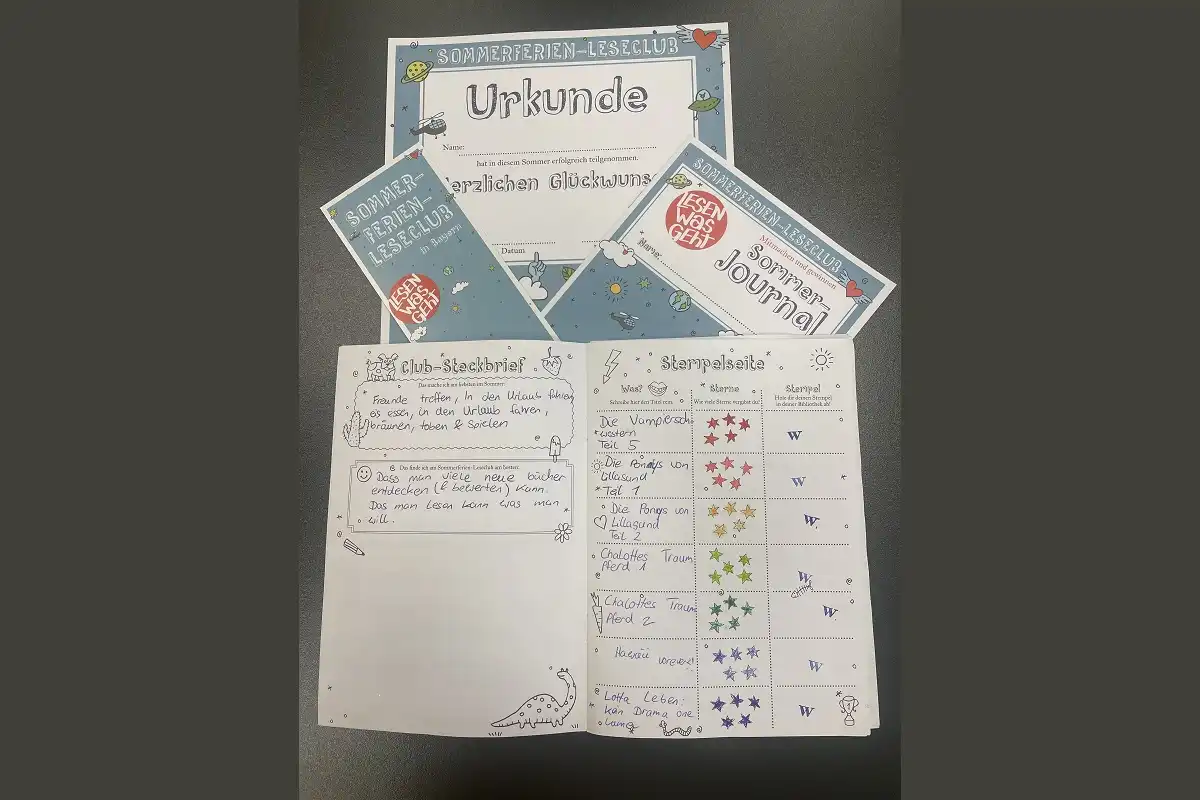 SOMMERFERIEN-LESECLUB
Urkunde
Name:
hat in diesem Sommer erfolgreich teilgenommen.
erzlichen Glückwuns
Datum
SOMMER-
FERIEN-
LESECLUB
in Bayern
LESEN
WAS
GEHT
SOMMERFERIEN-LESECLUB
LESEN
WAS
GEHT
Mitmachen und gewinnen
Sommer-
Journal
Name:
Club-Steckbrief
Das mache ich am liebsten im Sommer:
Freunde treffen, in den Urlaub fahren
eis essen, in den Urlaub fahren,
bräunen, toben & Spielen
Das finde ich am Sommerferien-Leseclub am besten:
Dass man viele neue bücher
entdecken (& bewerten) kann.
Das man lesen kann was man
will.
Stempelseite
Was?
Schreibe hier den Titel rein.
Sterne
Wie viele Sterne vergibst du?
Stempel
Hole dir deinen Stempel
in deiner Bibliothek ab!
Die Vampiersch
western
Teil 5
W
Die Ponys von
Lillasund
Teil 1
W
Die Ponys von
Lillasund
Teil 2
W
Chalottes Traum
Pferd 1
W
Chalottes Traum
Pferd 2
W
Hawaii
W
Lotta Leben:
kan Drama one
Lama
W
1